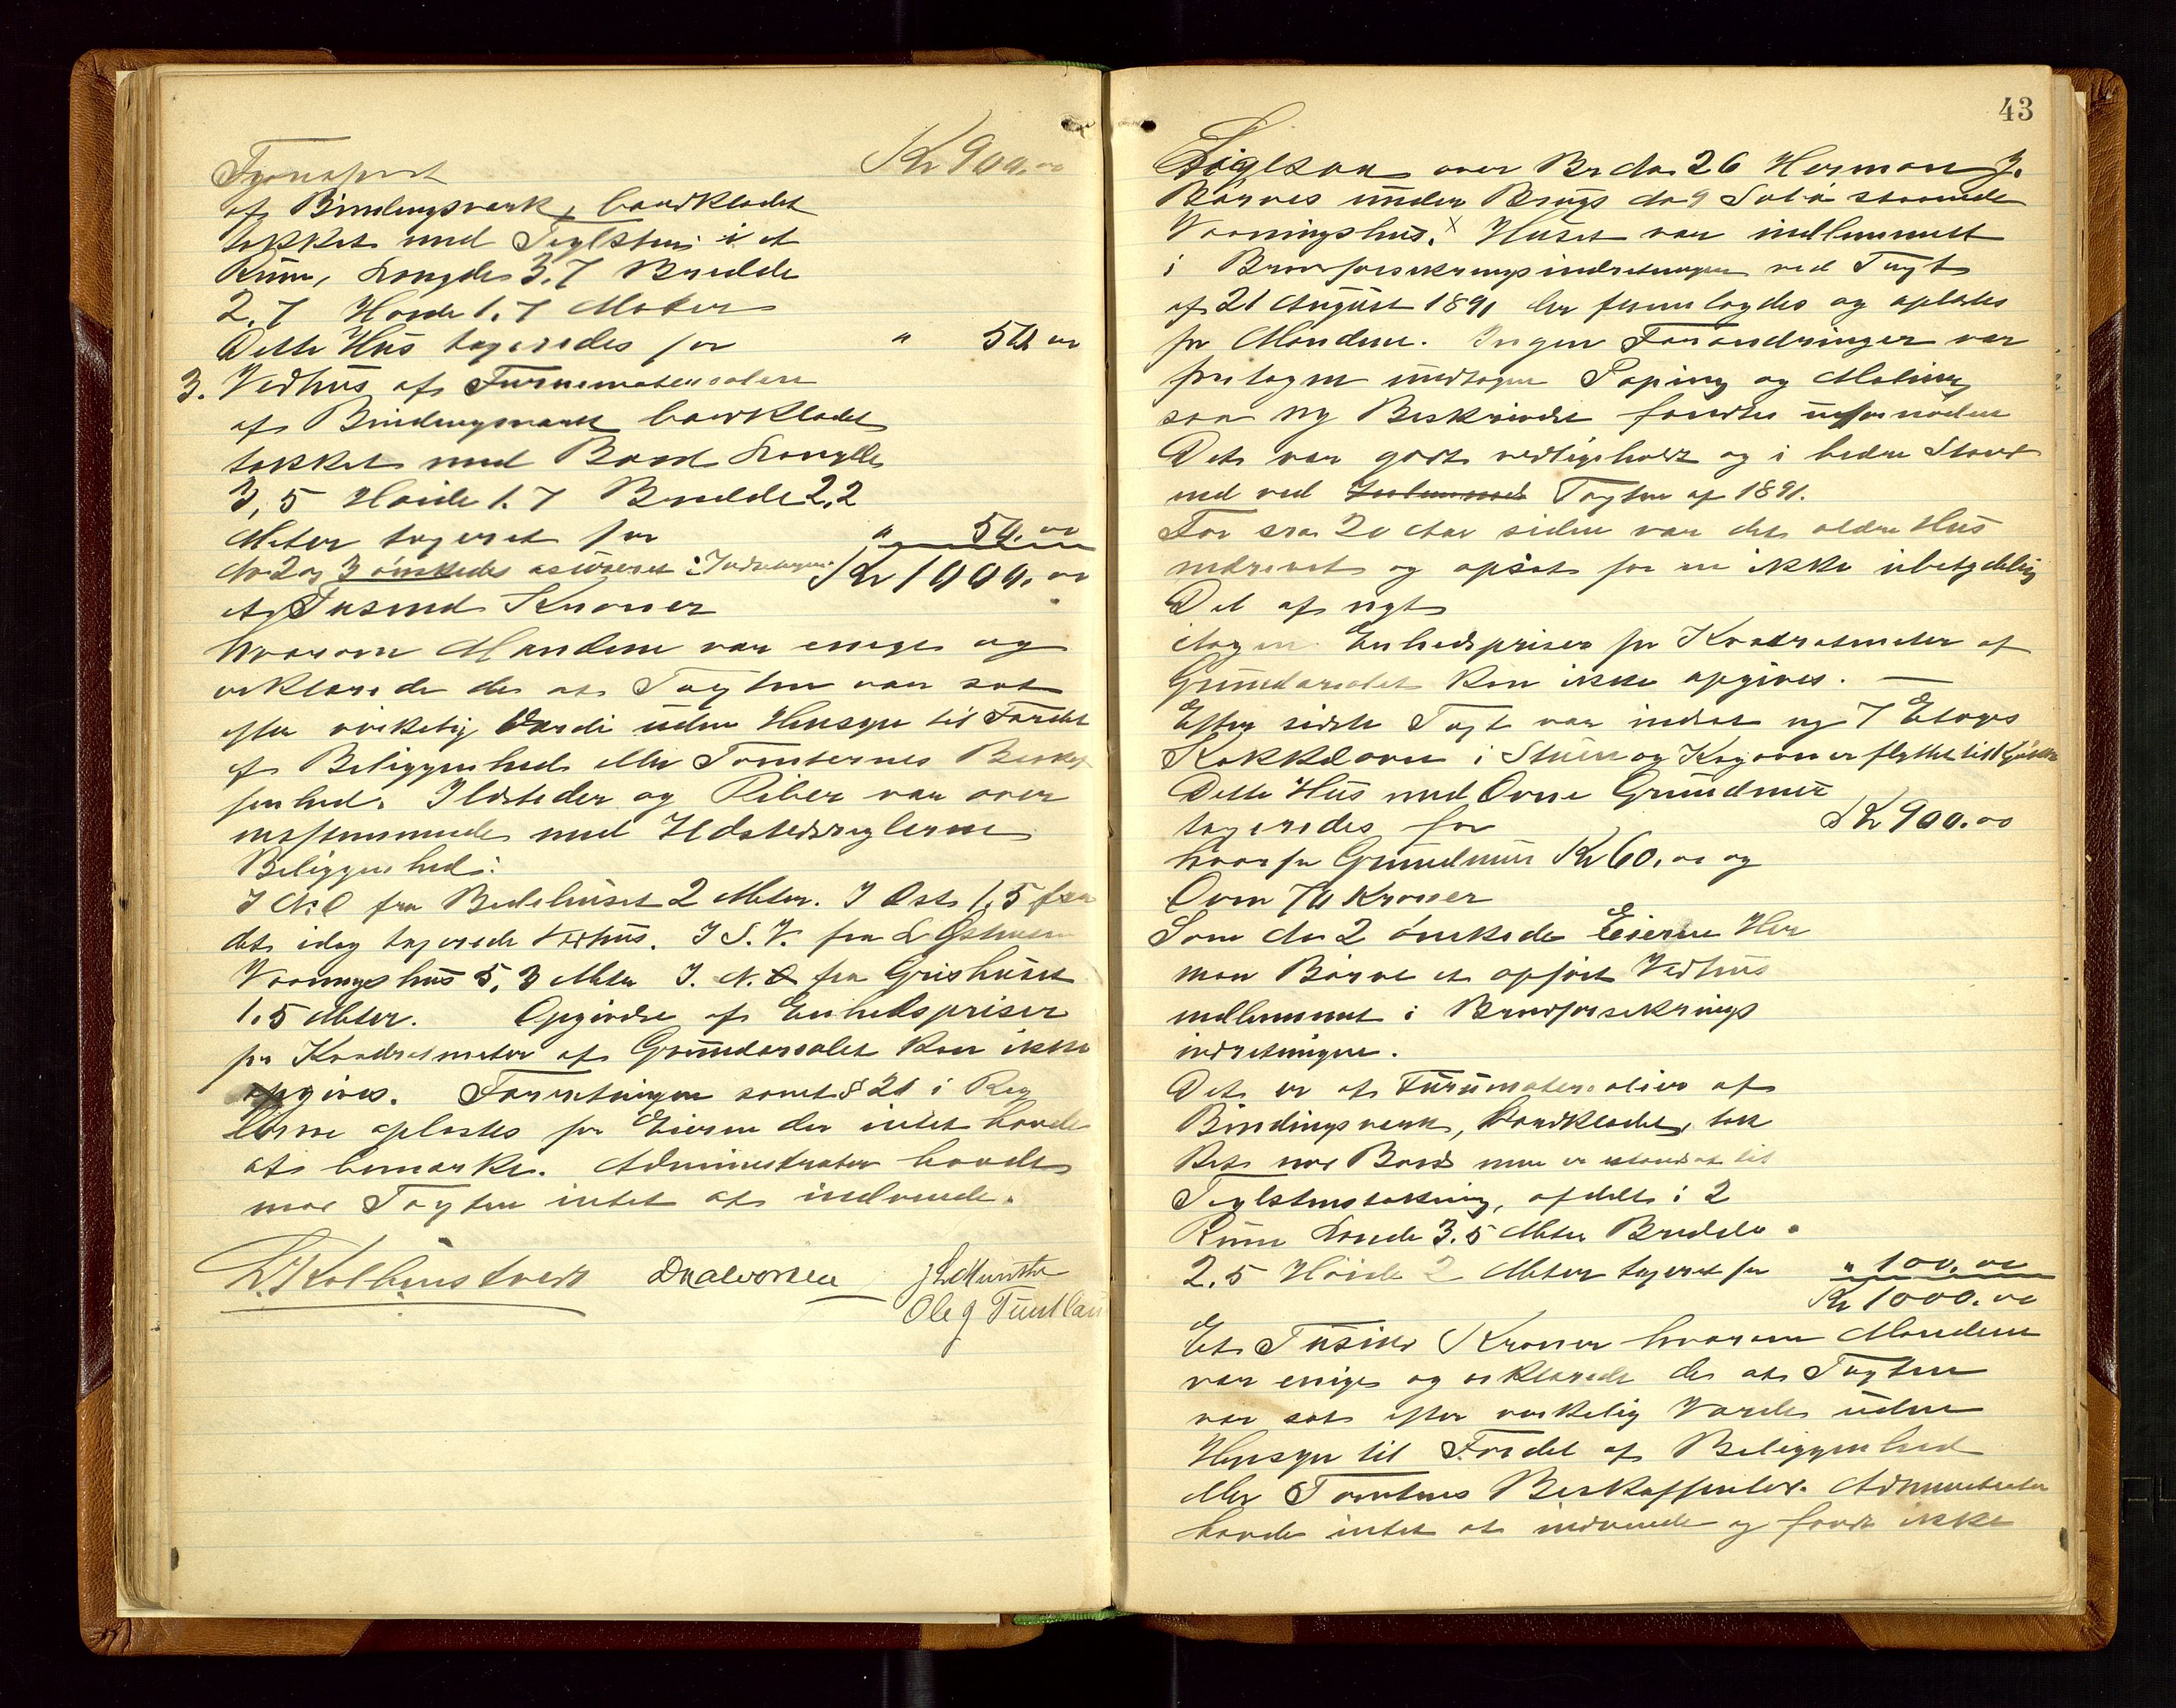 Transport Kr 900.00
af Bindingsværk, bordklædet
tækket med Teglsten i et
Rum, Længde 3.7 Bredde
2.7 Høide 1.7 Meter
Dette Hus taxeredes for " 50 00
3. Vedhus af Furumaterialier
af Bindingsværk bordklædet
tækket med Bord Længde
3,5 Høide 1.7 Bredde 2,2
Meter taxeret for " 50.00
No 2 og 3 ønskedes assureret i Indretningen Kr 1000.00
et Tusend Kroner
hvorom Mændene var enige og
erklærede de at Taxten var sat
efter virkelig Værdi uden Hensyn til Fordel
af Beliggenhed eller Tomternes Beskaf
fenhed. Ildsteder og Piber var over
ensstemmende med Ildstedsreglerne
Beliggenhed:
I N.O fra Bedehuset 2 Meter. I Øst 1,5 fra
det idag taxerede Vedhus. I S.V. fra L
Vaaningshus 5,3 Meter I. N.O fra Grishuset
1.5 Meter. Opgivelse af Enhedspriser
pr Kvadratmeter af Grundarealet kan ikke
opgives. Forretningen samt § 21 i Reg
lerne oplæstes for Eieren der intet havde
at bemærke. Administrator havde
mod Taxten intet at indvende.
D Halvorsen J L Munthe
Ole J Tuntland
43
over Br No 26 Herman J.
Børves under Brugs No 9 staaende
Vaaningshus. x Huset var indlemmet
i Brandforsikringsindretningen ved Taxt
af 21 August 1891 der fremlagdes og oplæstes
for Mændene. Ingen Forandringer var
foretagen undtagen Paping og Maling
saa ny Beskrivelse fandtes ufornøden
Det var godt vedligeholdt og i bedre Stand
end ved Taxten af 1891.
For cra 20 Aar siden var det ældre Hus
nedrevet og opsat for en ikke ubetydelig
Del af nyt
Nogen Enhedspriser pr Kvadratmeter af
Grundarealet kan ikke opgives. —
Efter sidste Taxt var indsat ny 7 Etages
Kakkelovn i Stuen og Kogovn er flyttet til Kjøkken
Dette Hus med Ovne Grundmur
taxeredes for Kr 900.00
hvoraf Grundmur Kr 60.00 og
Ovne 70 Kroner
Som No 2 ønskede Eieren Her
man Børve et opført Vedhus
indlemmet i Brandforsikrings
indretningen.
Det er af Furumaterialier af
Bindingsværk, bordklædet, tæk
ket med Bord men er istandsat til
Teglstenstækning, afdelt i 2
Rum Længde 3.5 Meter Bredde
2.5 Høide 2 Meter taxeret for " 100.00
Kr 1000.00
Et Tusind Kroner hvorom Mændene
var enige og erklærede de at Taxten
var sat efter virkelig Værdi uden
Hensyn til Fordel af Beliggenhed
eller Tomtens Beskaffenhed. Administrator
havde intet at indvende og fandt ikke